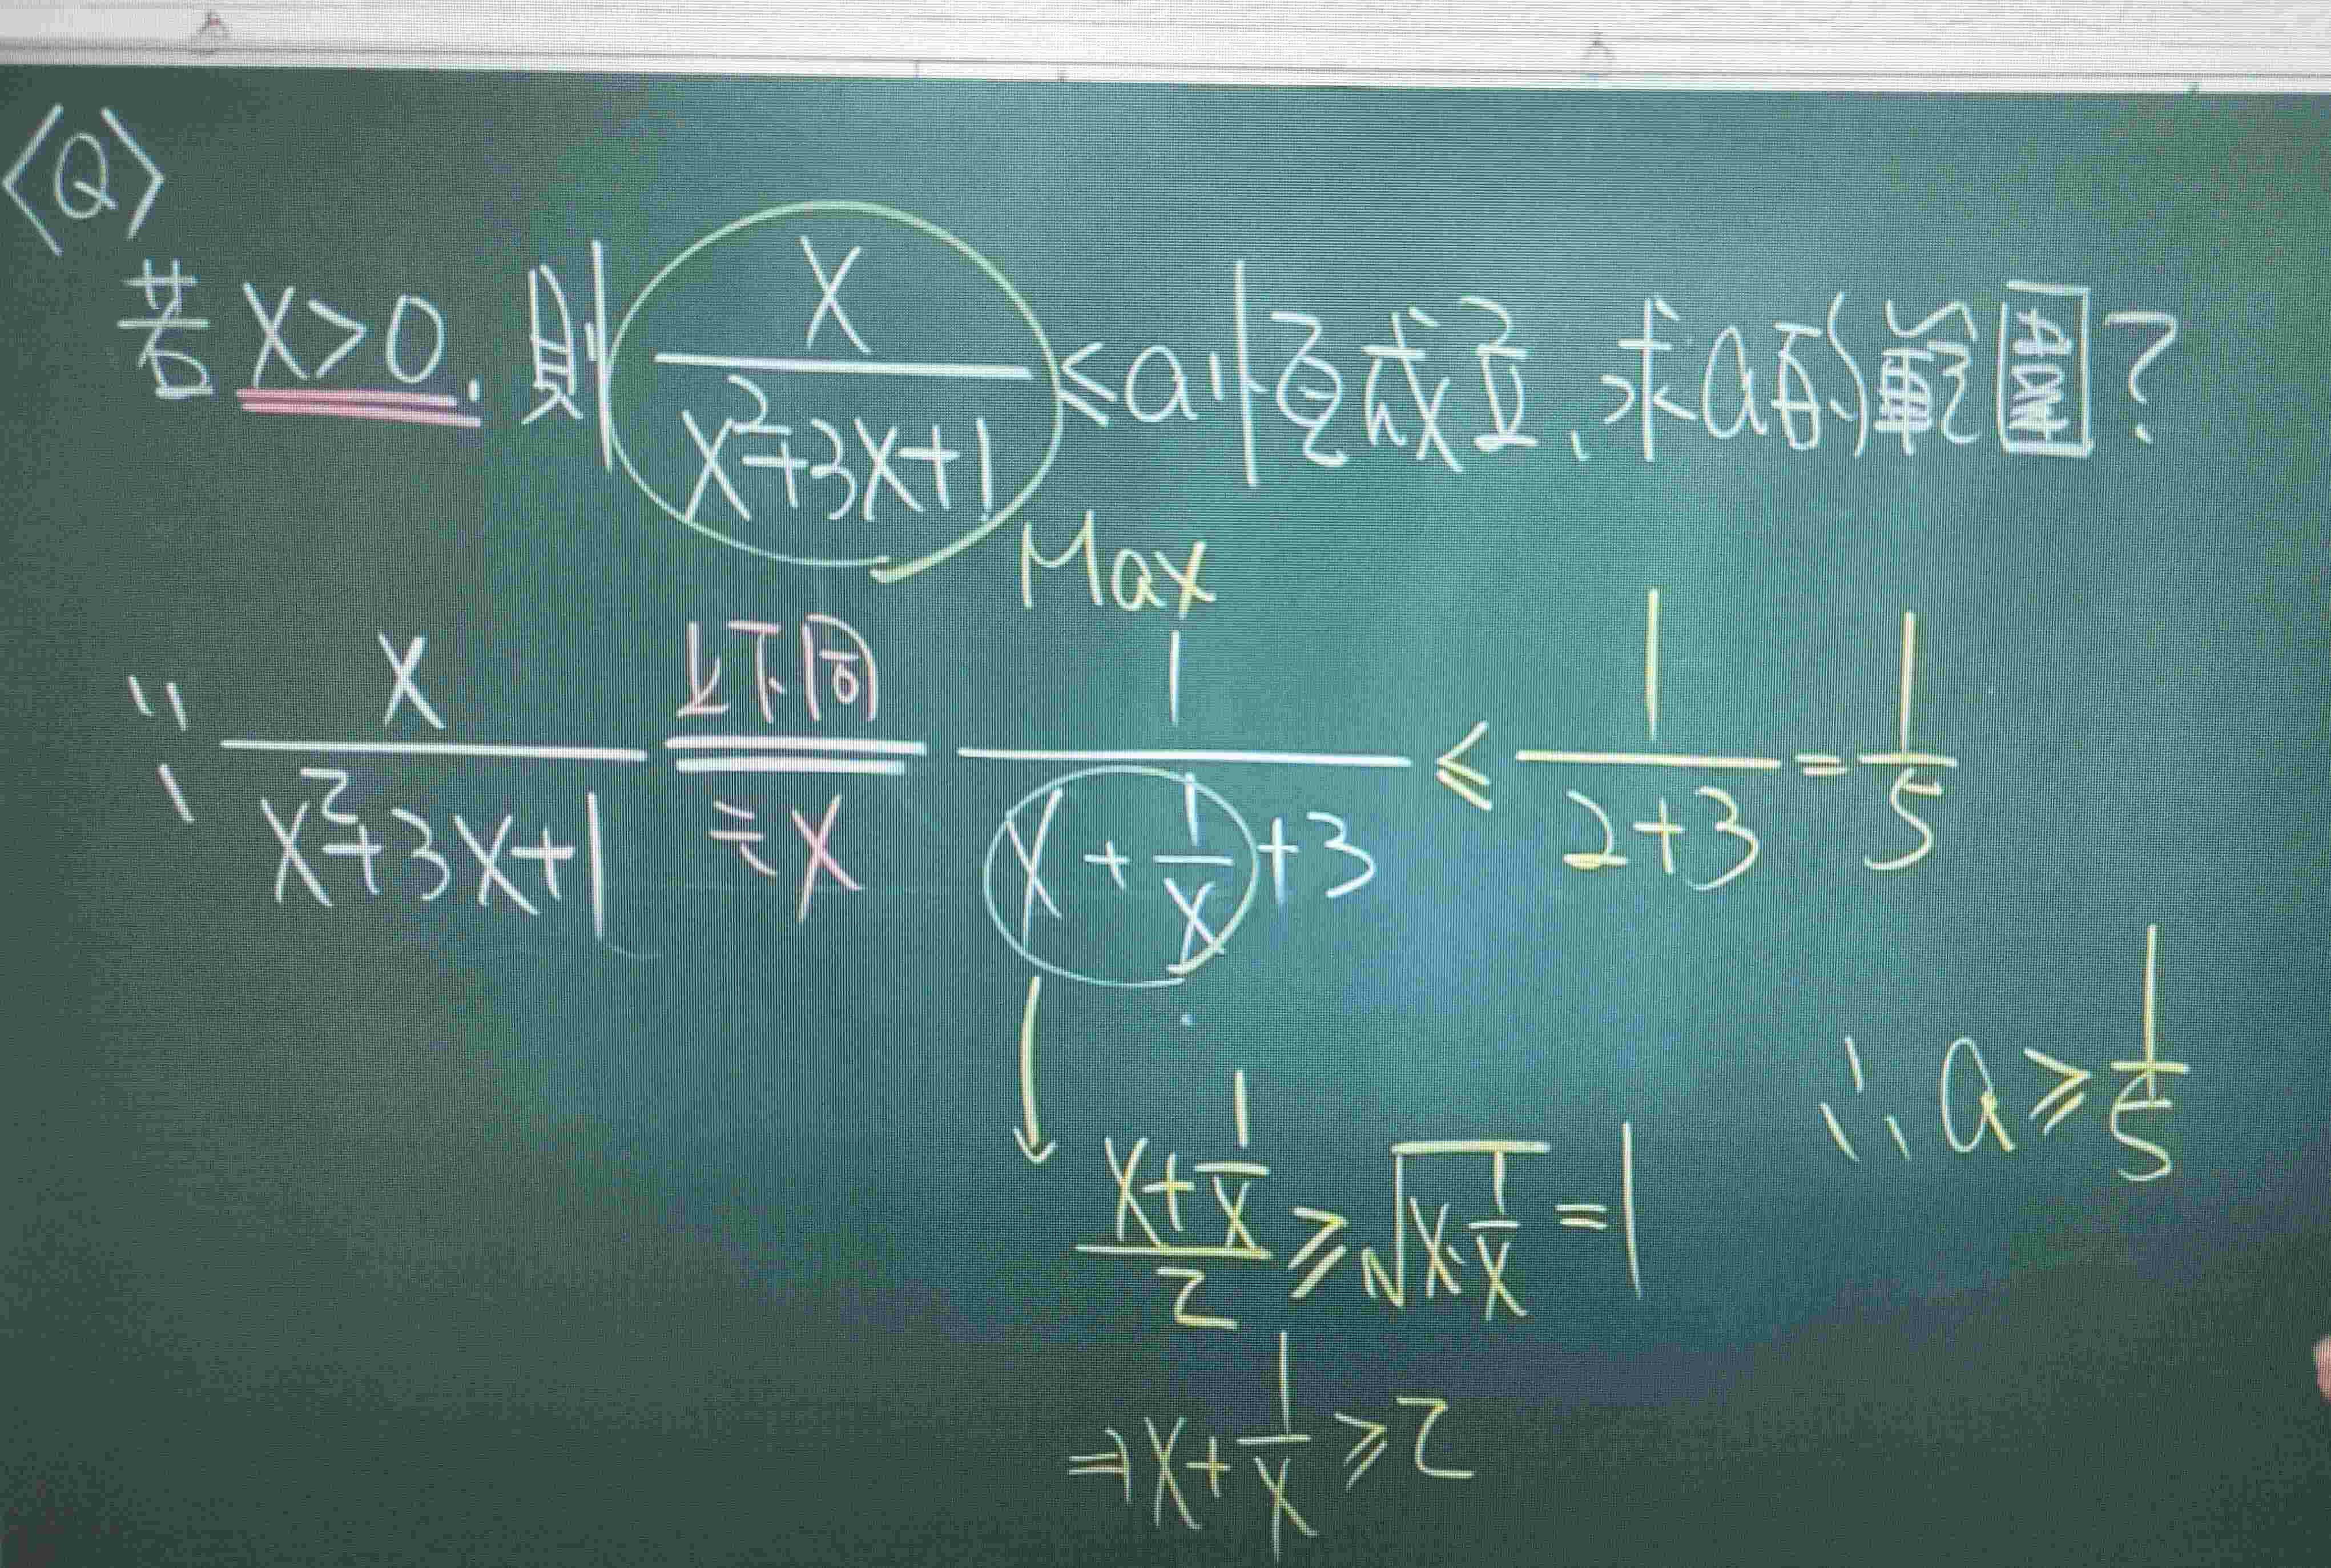 〈Q〉
若 x>0. 則 x/(x²+3x+1) ≤a 恆成立, 求a的範圍?
Max
∵ x/(x²+3x+1) 上下同÷x = 1/(x+1/x+3) ≤ 1/(2+3) = 1/5
∴ a≥1/5
(x+1/x)/2 ≥ √(x·1/x) =1
⇒x+1/x ≥2